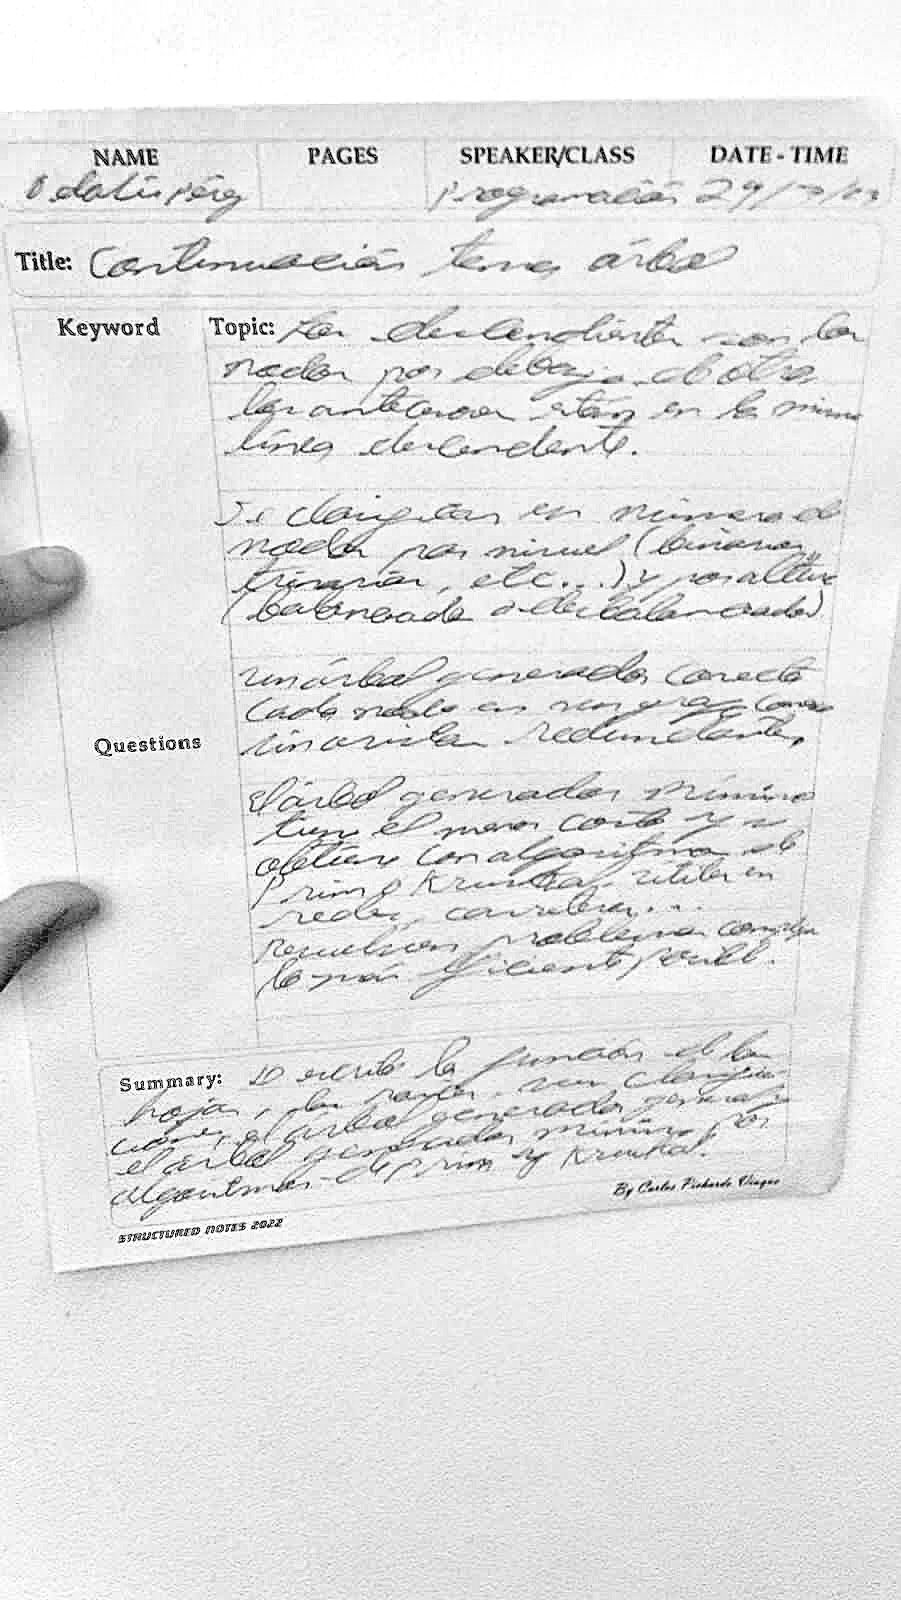 NAME PAGES SPEAKER/CLASS DATE - TIME
Programación 29/
Title: Continuación tema árbol
Keyword Topic: Los descendientes son los
nodos por debajo de otro
los antecesores están en la misma
línea descendente.
Se clasifican en número de
nodos por nivel (binarios,
trinarios, etc...) y por altura
(balanceado o desbalanceado)
un árbol generador conecta
cada nodo en un grafo conexo
Questions
sin aristas redundantes.
El árbol generador mínimo
tiene el menor costo y se
obtiene con algoritmo de
Prim o Kruskal. útiles en
redes, carreteras...
resuelven problemas complejos
lo más eficiente posible.
Summary: Se escribe la función de las
hojas, las raíces, sus clasifica-
ciones, el árbol generador general y
el árbol generador mínimo por
algoritmos de Prim y Kruskal.
By Carlos Pichardo Viuque
STRUCTURED NOTES 2022